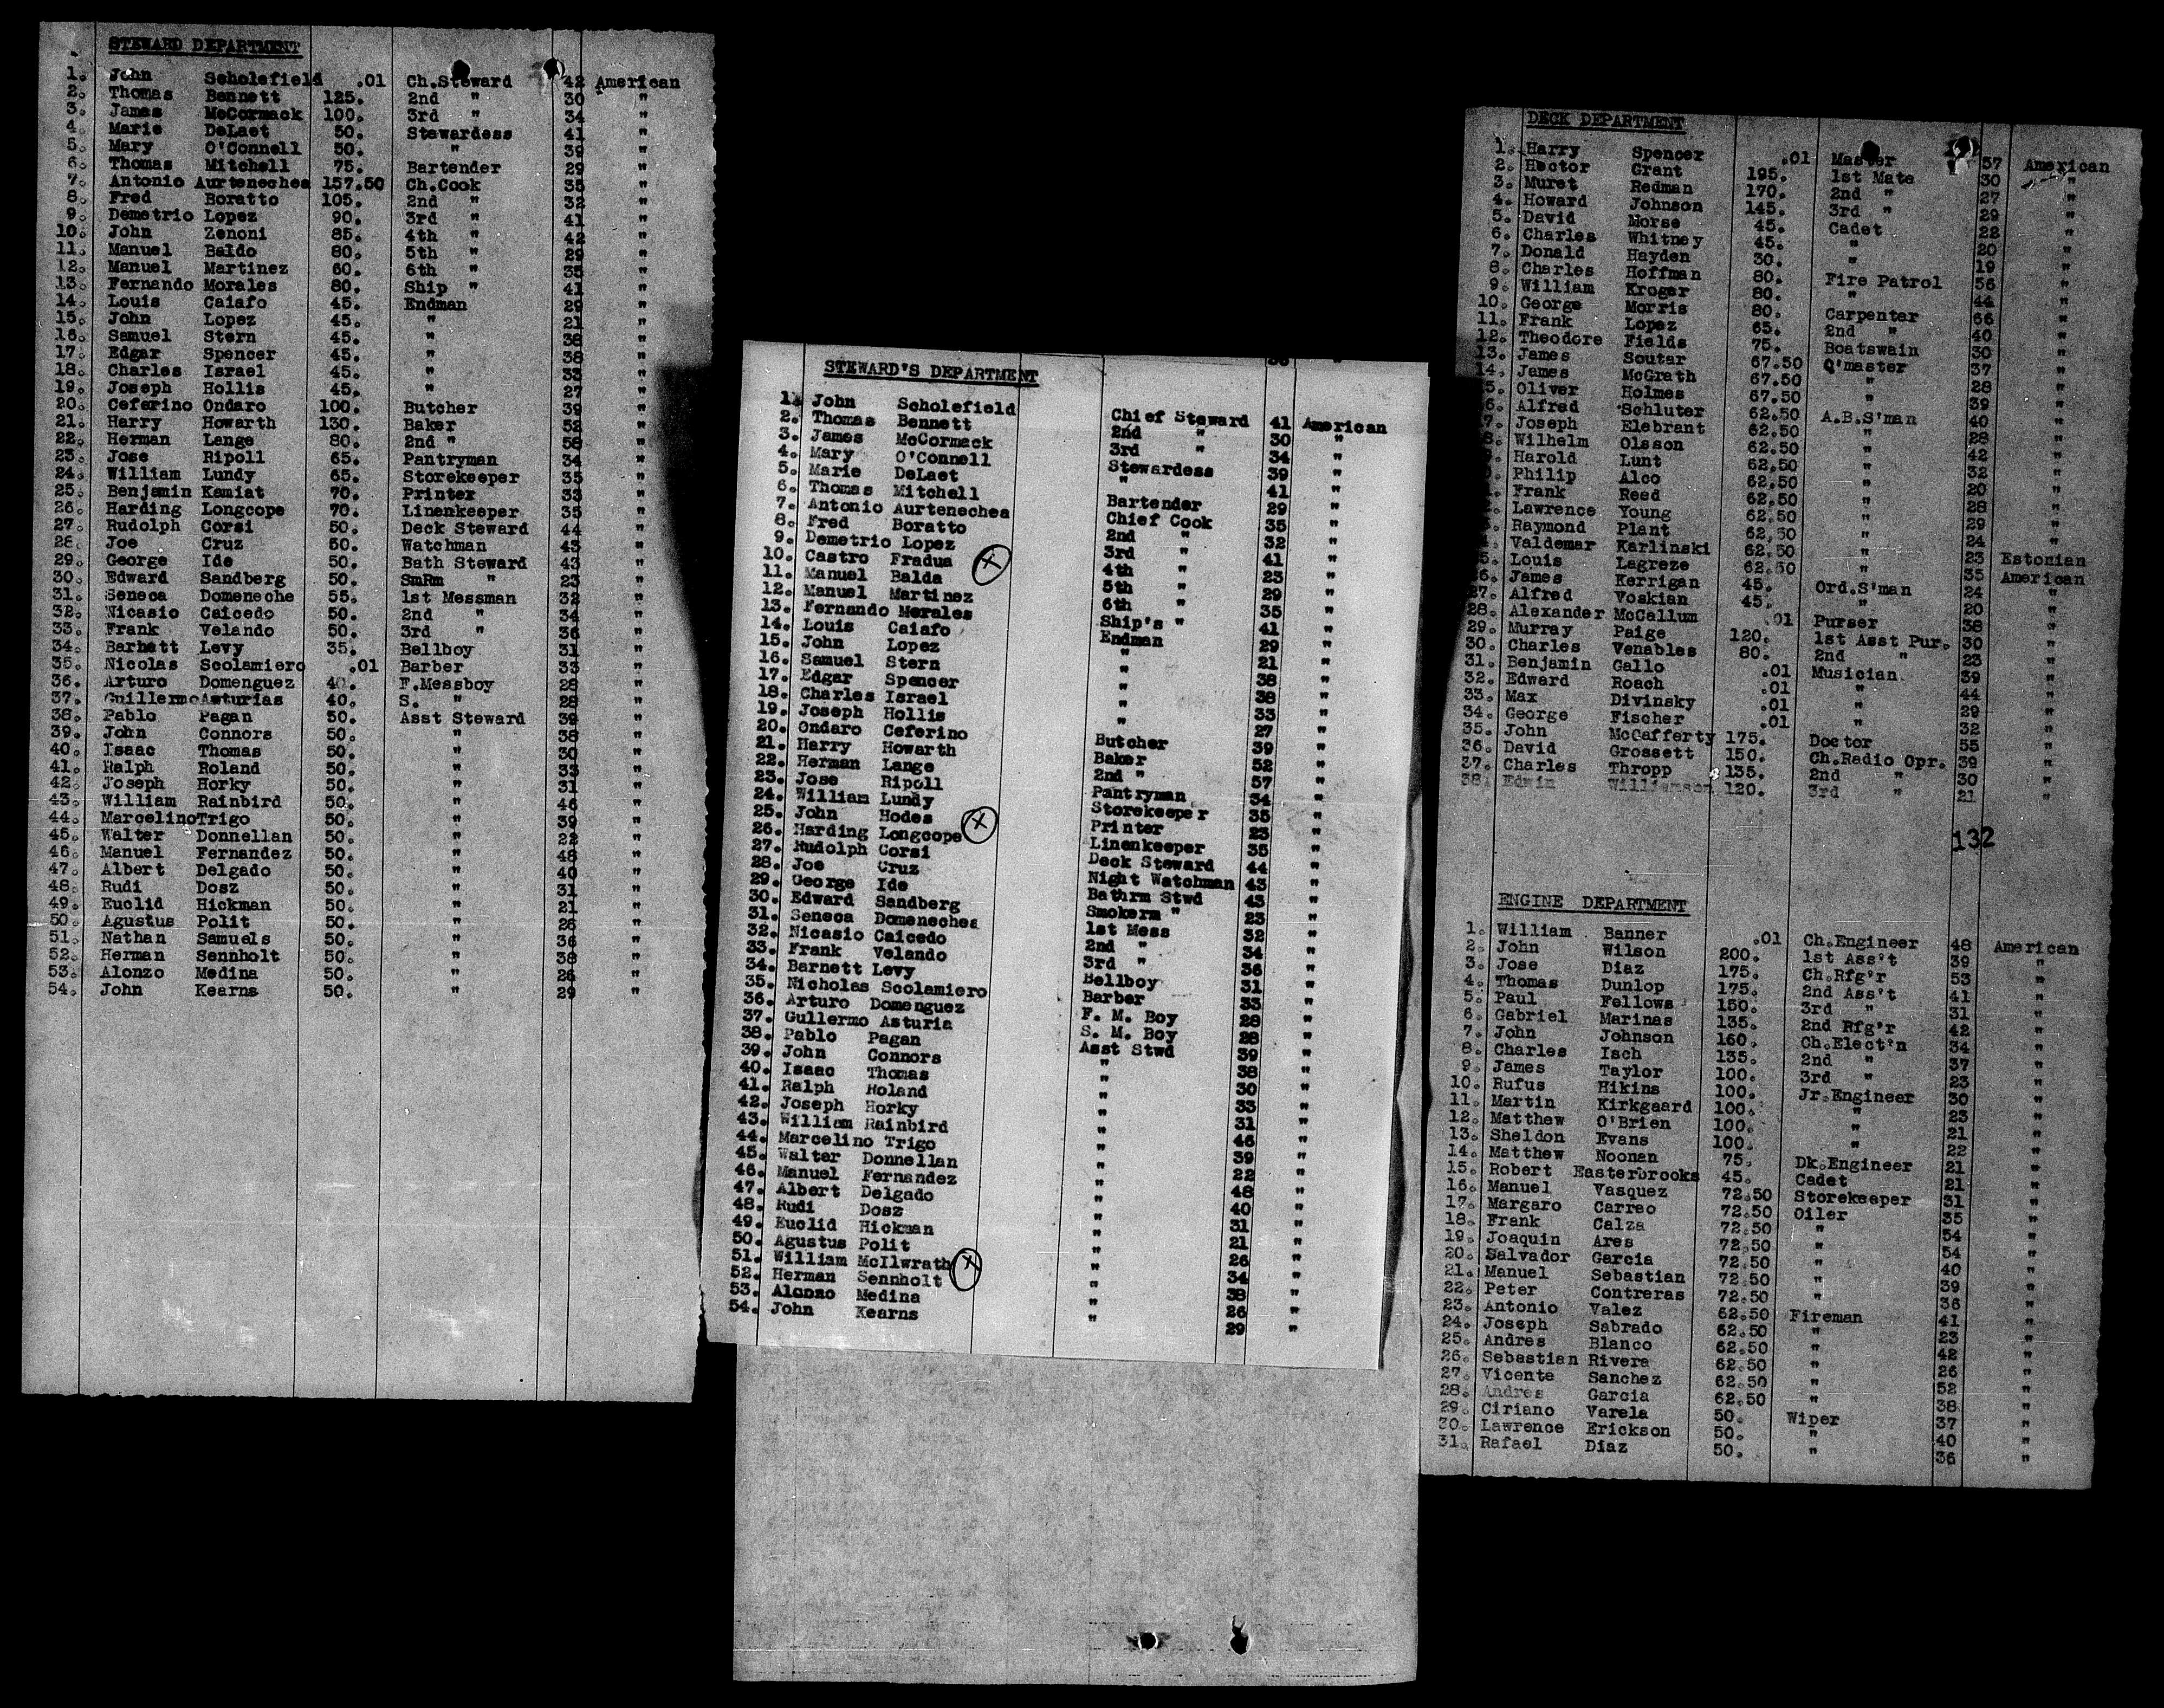 STEWARD DEPARTMENT
1. John Scholefield .01 Ch.Steward 42 American
2. Thomas Bennett 125. 2nd " 30 "
3. James McCormack 100. 3rd " 34 "
4. Marie DeLaet 50. Stewardess 41 "
5. Mary O'Connell 50. " 39 "
6. Thomas Mitchell 75. Bartender 29 "
7. Antonio Aurtenechea 157.50 Ch.Cook 35 "
8. Fred Boratto 105. 2nd " 32 "
9. Demetrio Lopez 90. 3rd " 41 "
10. John Zenoni 85. 4th " 42 "
11. Manuel Baldo 80. 5th " 29 "
12. Manuel Martinez 60. 6th " 35 "
13. Fernando Morales 80. Ship " 41 "
14. Louis Caiafo 45. Endman 29 "
15. John Lopez 45. " 21 "
16. Samuel Stern 45. " 38 "
17. Edgar Spencer 45. " 38 "
18. Charles Israel 45. " 33 "
19. Joseph Hollis 45. " 27 "
20. Ceferino Ondaro 100. Butcher 39 "
21. Harry Howarth 130. Baker 52 "
22. Herman Lange 80. 2nd " 58 "
23. Jose Ripoll 65. Pantryman 34 "
24. William Lundy 65. Storekeeper 35 "
25. Benjamin Kamiat 70. Printer 33 "
26. Harding Longcope 70. Linenkeeper 35 "
27. Rudolph Corsi 50. Deck Steward 44 "
28. Joe Cruz 50. Watchman 43 "
29. George Ide 50. Bath Steward 43 "
30. Edward Sandberg 50. SmRm " 23 "
31. Seneca Domeneche 55. 1st Messman 32 "
32. Nicasio Caicedo 50. 2nd " 34 "
33. Frank Velando 50. 3rd " 36 "
34. Barnett Levy 35. Bellboy 31 "
35. Nicolas Scolamiero .01 Barber 33 "
36. Arturo Domenguez 40. F.Messboy 28 "
37. Guillermo Asturias 40. S. " 28 "
38. Pablo Pagan 50. Asst Steward 39 "
39. John Connors 50. " 38 "
40. Isaac Thomas 50. " 30 "
41. Ralph Roland 50. " 33 "
42. Joseph Horky 50. " 31 "
43. William Rainbird 50. " 46 "
44. Marcelino Trigo 50. " 39 "
45. Walter Donnellan 50. " 22 "
46. Manuel Fernandez 50. " 48 "
47. Albert Delgado 50. " 40 "
48. Rudi Dosz 50. " 31 "
49. Euclid Hickman 50. " 21 "
50. Agustus Polit 50. " 26 "
51. Nathan Samuels 50. " 36 "
52. Herman Sennholt 50. " 38 "
53. Alonzo Medina 50. " 26 "
54. John Kearns 50. " 29 "
STEWARD'S DEPARTMENT
1. John Scholefield Chief Steward 41 American
2. Thomas Bennett 2nd " 30 "
3. James McCormack 3rd " 34 "
4. Mary O'Connell Stewardess 39 "
5. Marie DeLaet " 41 "
6. Thomas Mitchell Bartender 29 "
7. Antonio Aurtenechea Chief Cook 35 "
8. Fred Boratto 2nd " 32 "
9. Demetrio Lopez 3rd " 41 "
10. Castro Fradua X 4th " 23 "
11. Manuel Balda 5th " 29 "
12. Manuel Martinez 6th " 35 "
13. Fernando Morales Ship's " 41 "
14. Louis Caiafo Endman 29 "
15. John Lopez " 21 "
16. Samuel Stern " 38 "
17. Edgar Spencer " 38 "
18. Charles Israel " 33 "
19. Joseph Hollis " 27 "
20. Ondaro Ceferino Butcher 39 "
21. Harry Howarth Baker 52 "
22. Herman Lange 2nd " 57 "
23. Jose Ripoll Pantryman 34 "
24. William Lundy Storekeeper 35 "
25. John Hodes X Printer 23 "
26. Harding Longcope Linenkeeper 35 "
27. Rudolph Corsi Deck Steward 44 "
28. Joe Cruz Night Watchman 43 "
29. George Ide Bathrm Stwd 43 "
30. Edward Sandberg Smokerm " 23 "
31. Seneca Domenechea 1st Mess 32 "
32. Nicasio Caicedo 2nd " 34 "
33. Frank Velando 3rd " 36 "
34. Barnett Levy Bellboy 31 "
35. Nicholas Scolamiero Barber 33 "
36. Arturo Domenguez F. M. Boy 28 "
37. Gullermo Asturia S. M. Boy 28 "
38. Pablo Pagan Asst Stwd 39 "
39. John Connors " 38 "
40. Isaac Thomas " 30 "
41. Ralph Roland " 33 "
42. Joseph Horky " 31 "
43. William Rainbird " 46 "
44. Marcelino Trigo " 39 "
45. Walter Donnellan " 22 "
46. Manuel Fernandez " 48 "
47. Albert Delgado " 40 "
48. Rudi Dosz " 31 "
49. Euclid Hickman " 21 "
50. Agustus Polit " 26 "
51. William McIlwrath X " 34 "
52. Herman Sennholt " 38 "
53. Alonzo Medina " 26 "
54. John Kearns " 29 "
DECK DEPARTMENT
1. Harry Spencer .01 Master 57 American
2. Hector Grant 195. 1st Mate 30 "
3. Muret Redman 170. 2nd " 27 "
4. Howard Johnson 145. 3rd " 29 "
5. David Morse 45. Cadet 22 "
6. Charles Whitney 45. " 20 "
7. Donald Hayden 30. " 19 "
8. Charles Hoffman 80. Fire Patrol 56 "
9. William Kroger 80. " 44 "
10. George Morris 80. Carpenter 66 "
11. Frank Lopez 65. 2nd " 40 "
12. Theodore Fields 75. Boatswain 30 "
13. James Soutar 67.50 Q'master 37 "
14. James McGrath 67.50 " 28 "
5. Oliver Holmes 67.50 " 39 "
6. Alfred Schluter 62.50 A.B.S'man 40 "
7. Joseph Elebrant 62.50 " 28 "
8. Wilhelm Olsson 62.50 " 42 "
9. Harold Lunt 62.50 " 32 "
Philip Alco 62.50 " 20 "
Frank Reed 62.50 " 28 "
Lawrence Young 62.50 " 29 "
Raymond Plant 62.50 " 24 "
4. Valdemar Karlinski 62.50 " 23 Estonian
5. Louis Lagreze 62.50 " 35 American
26. James Kerrigan 45. Ord.S'man 24 "
27. Alfred Voskian 45. " 20 "
28. Alexander McCallum .01 Purser 38 "
29. Murray Paige 120. 1st Asst Pur. 30 "
30. Charles Venables 80. 2nd " 23 "
31. Benjamin Gallo .01 Musician 39 "
32. Edward Roach .01 " 44 "
33. Max Divinsky .01 " 29 "
34. George Fischer .01 " 32 "
35. John McCafferty 175. Doctor 55 "
36. David Grossett 150. Ch.Radio Opr. 39 "
37. Charles Thropp 135. 2nd " 30 "
38. Edwin Williamson 120. 3rd " 21 "
132
ENGINE DEPARTMENT
1. William Banner .01 Ch.Engineer 48 American
2. John Wilson 200. 1st Ass't 39 "
3. Jose Diaz 175. Ch.Rfg'r 53 "
4. Thomas Dunlop 175. 2nd Ass't 41 "
5. Paul Fellows 150. 3rd " 31 "
6. Gabriel Marinas 135. 2nd Rfg'r 42 "
7. John Johnson 160. Ch.Elect'n 34 "
8. Charles Isch 135. 2nd " 37 "
9. James Taylor 100. 3rd " 23 "
10. Rufus Hikins 100. Jr.Engineer 30 "
11. Martin Kirkgaard 100. " 23 "
12. Matthew O'Brien 100. " 21 "
13. Sheldon Evans 100. " 22 "
14. Matthew Noonan 75. Dk.Engineer 21 "
15. Robert Easterbrooks 45. Cadet 21 "
16. Manuel Vasquez 72.50 Storekeeper 31 "
17. Margaro Carreo 72.50 Oiler 35 "
18. Frank Calza 72.50 " 54 "
19. Joaquin Ares 72.50 " 54 "
20. Salvador Garcia 72.50 " 40 "
21. Manuel Sebastian 72.50 " 39 "
22. Peter Contreras 72.50 " 36 "
23. Antonio Valez 62.50 Fireman 41 "
24. Joseph Sabrado 62.50 " 23 "
25. Andres Blanco 62.50 " 42 "
26. Sebastian Rivera 62.50 " 26 "
27. Vicente Sanchez 62.50 " 52 "
28. Andres Garcia 62.50 " 38 "
29. Ciriano Varela 50. Wiper 37 "
30. Lawrence Erickson 50. " 40 "
31. Rafael Diaz 50. " 36 "